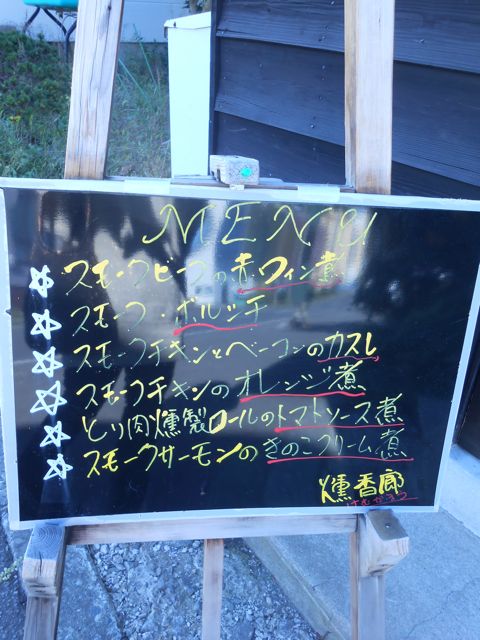 MENU
☆ スモークビーフの赤ワイン煮
☆ スモーク・ボルシチ
☆ スモークチキンとベーコンのカスレ
☆ スモークチキンのオレンジ煮
☆ とり肉燻製ロールのトマトソース煮
☆ スモークサーモンのきのこクリーム煮
燻香廊
けむかろう